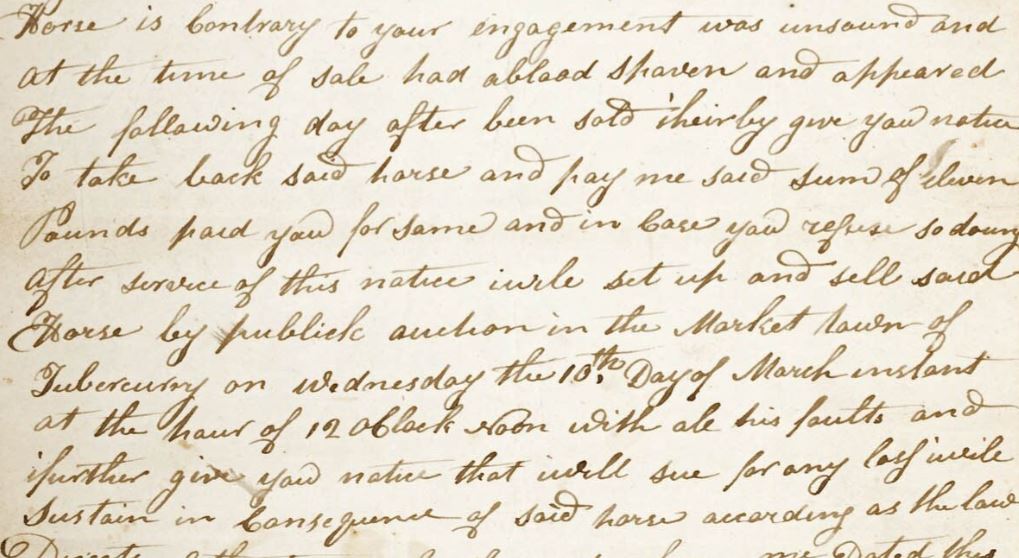 Horse is Contrary to your engagement was unsound and
at the time of sale had ablood Spaven and appeared
The following day after been sold iheirby give you notice
To take back said horse and pay me said sum of eleven
Pounds paid you for same and in Case you refuse so doing
after service of this notice iwile set up and sell said
Horse by publick auction in the Market town of
Tubercurry on wednesday the 10th Day of March instant
at the hour of 12 oClock Noon with ale his faults and
ifurther give you notice that iwill sue for any loss iwile
Sustain in Consequence of said horse according as the law
me Dated this